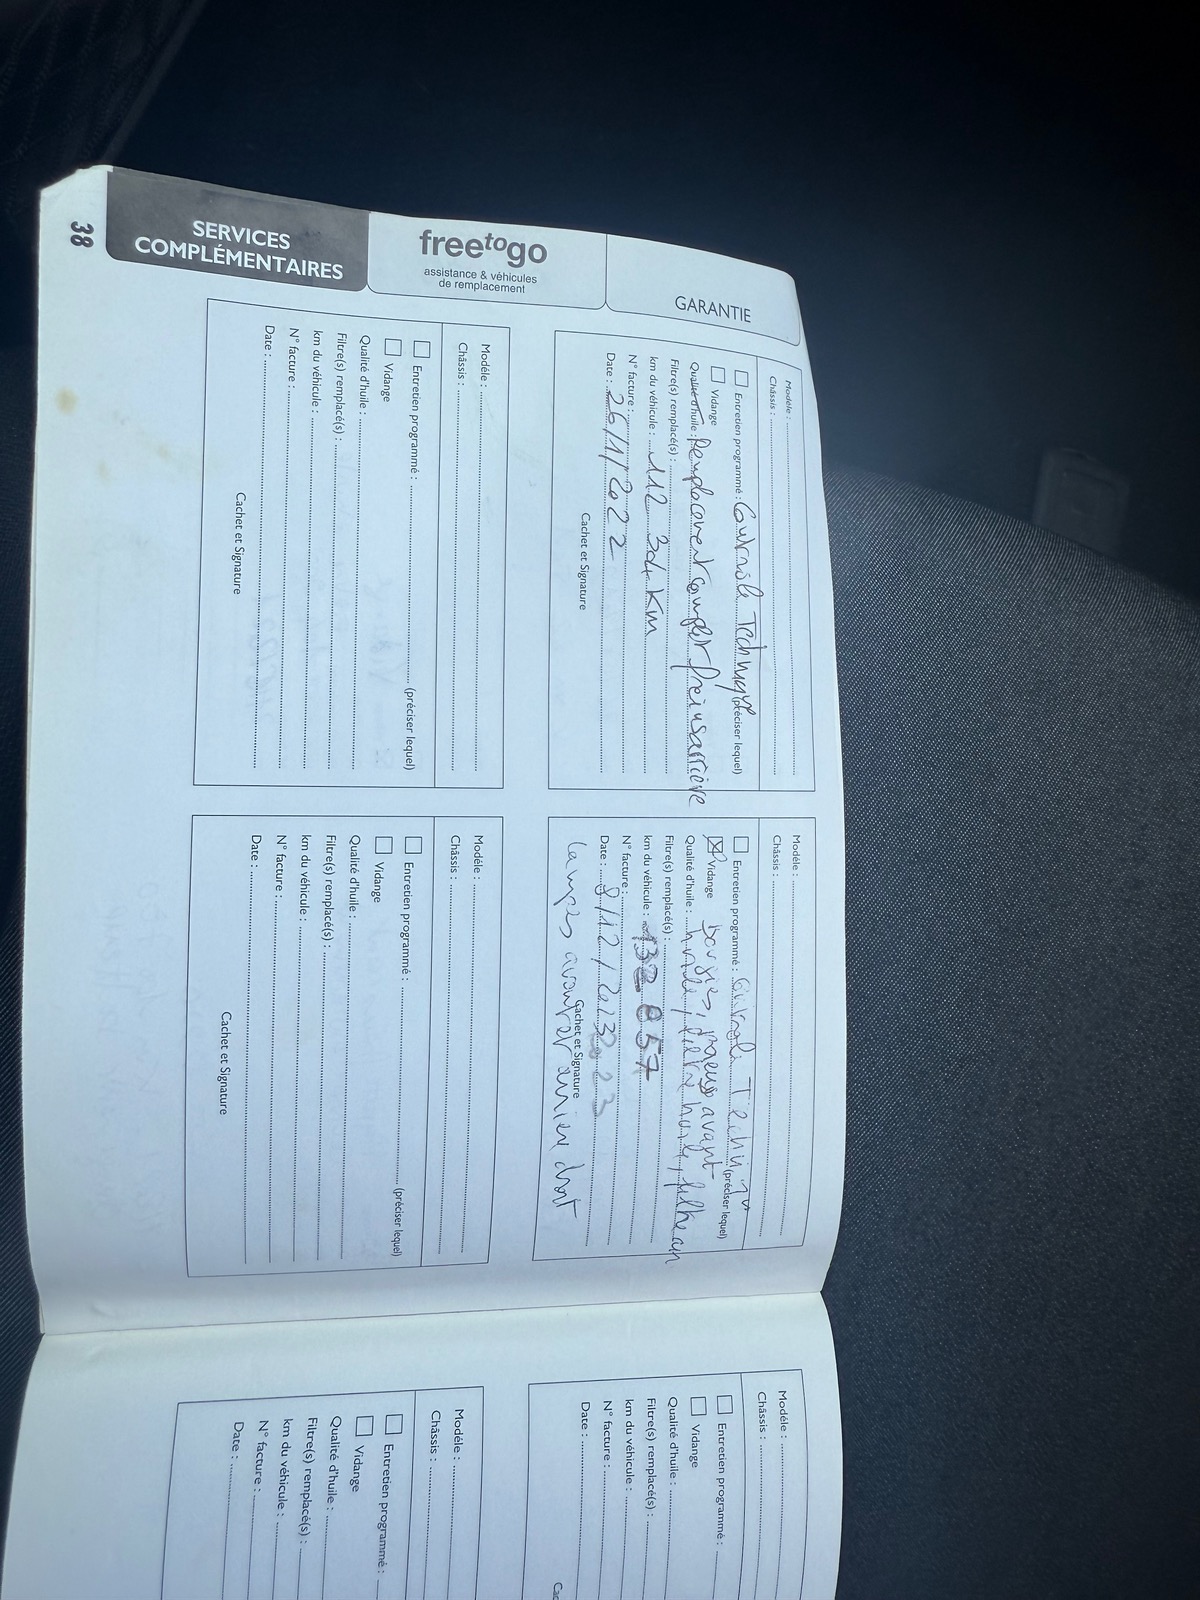 38
SERVICES
COMPLÉMENTAIRES
freetogo
assistance & véhicules
de remplacement
GARANTIE
Modèle :
Châssis :
Entretien programmé : Contrôle Technique (préciser lequel)
Vidange
Qualité d'huile : Remplacement complet freins arrière
Filtre(s) remplacé(s) :
km du véhicule : 112 304 km
N° facture :
Date : 26/11/2022
Cachet et Signature
Modèle :
Châssis :
Entretien programmé : Contrôle Techniq (préciser lequel)
Vidange bougies, pneus avant
Qualité d'huile : huile, filtre huile, filtre
Filtre(s) remplacé(s) :
km du véhicule : 132 857
N° facture :
Date : 8/12/2023
Cachet et Signature
lampes avant et droit
Modèle :
Châssis :
Entretien programmé : (préciser lequel)
Vidange
Qualité d'huile :
Filtre(s) remplacé(s) :
km du véhicule :
N° facture :
Date :
Cachet et Signature
Modèle :
Châssis :
Entretien programmé : (préciser lequel)
Vidange
Qualité d'huile :
Filtre(s) remplacé(s) :
km du véhicule :
N° facture :
Date :
Cachet et Signature
Modèle :
Châssis :
Entretien programmé :
Vidange
Qualité d'huile :
Filtre(s) remplacé(s) :
km du véhicule :
N° facture :
Date :
Cac
Modèle :
Châssis :
Entretien programmé :
Vidange
Qualité d'huile :
Filtre(s) remplacé(s) :
km du véhicule :
N° facture :
Date :